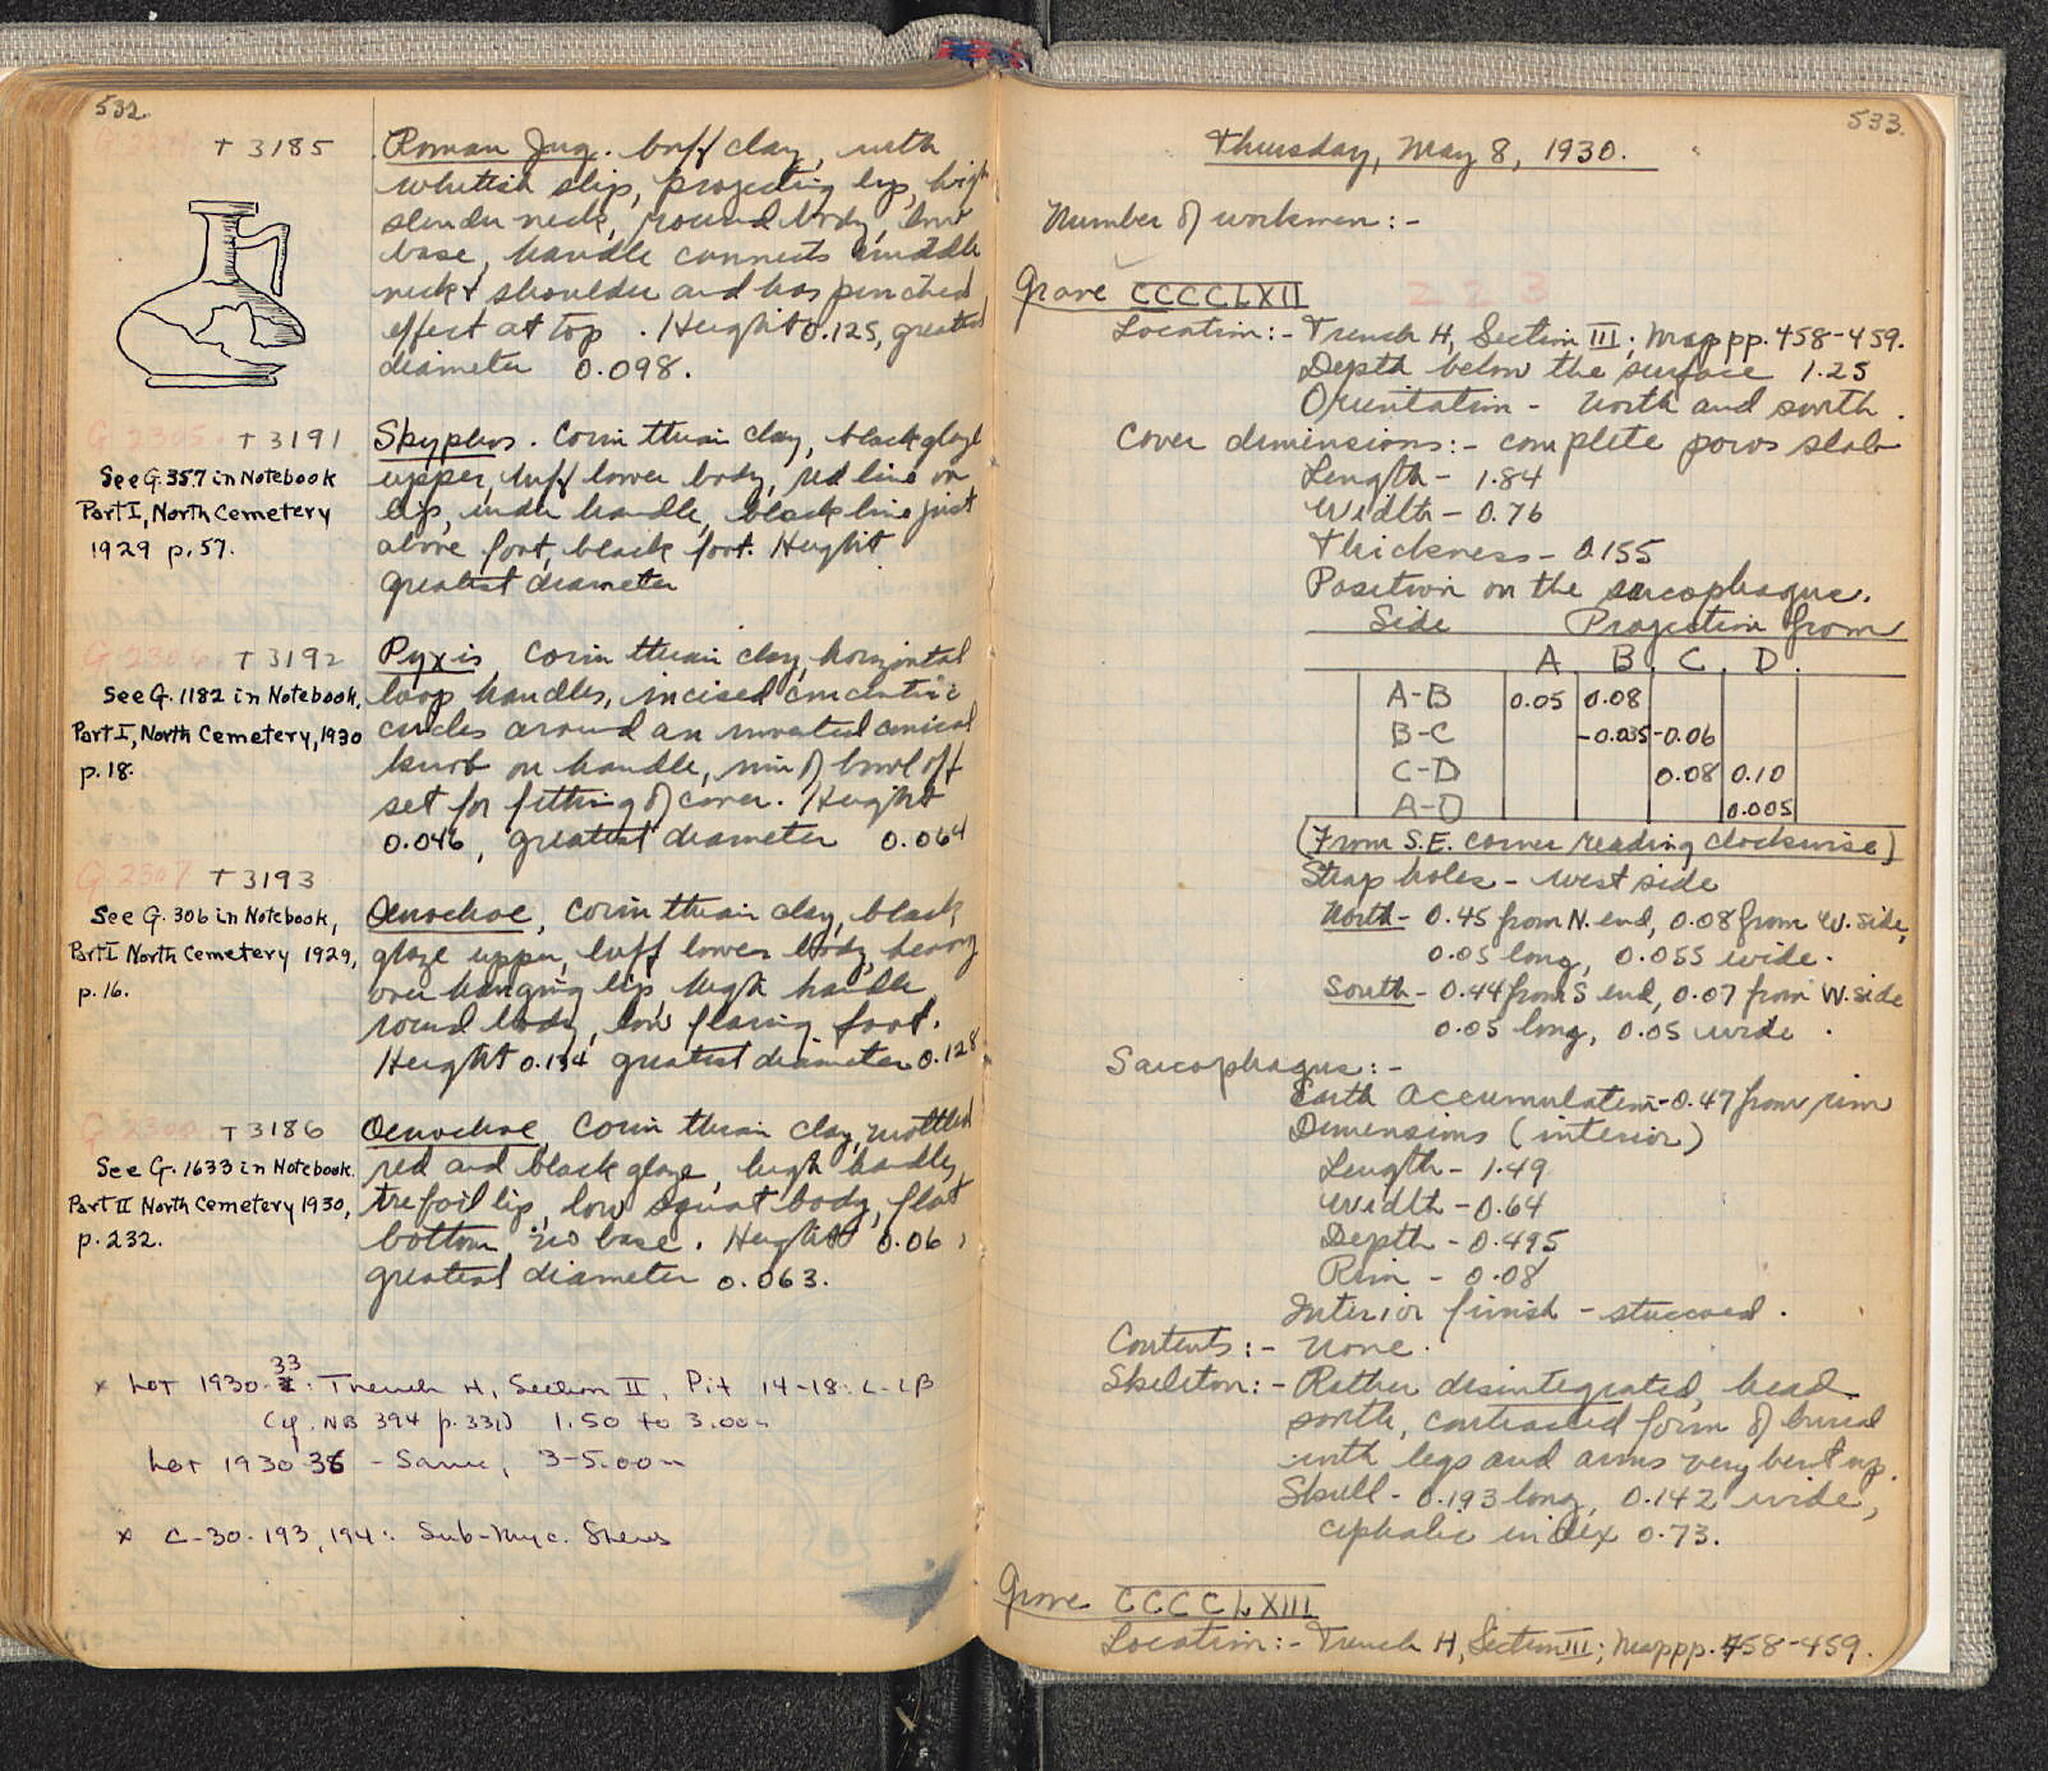 532.
T 3185
Roman Jug. buff clay, with
whitish slip, projecting lip, high
slender neck, round body, low
base, handle connects middle
neck & shoulder and has pinched
effect at top. Height 0.125, greatest
diameter 0.098.
G 2305. T 3191
See G. 357 in Notebook
Part I, North Cemetery
1929 p. 57.
Skyphos. Corinthian clay, black glaze
upper, buff lower body, red line on
lip, under handle, black line just
above foot, black foot. Height
greatest diameter
G 2306. T 3192
See G. 1182 in Notebook,
Part I, North Cemetery, 1930
p. 18.
Pyxis Corinthian clay, horizontal
loop handles, incised concentric
circles around an inverted conical
knob on handle, rim of bowl off
set for fitting of cover. Height
0.046, greatest diameter 0.064
G 2307 T 3193
See G. 306 in Notebook,
Part I North Cemetery 1929,
p. 16.
Oenochoe, Corinthian clay, black
glaze upper, buff lower body, heavy
over hanging lip, high handle
round body, low flaring foot.
Height 0.134 greatest diameter 0.128
T 3186
See G. 1633 in Notebook.
Part II North Cemetery 1930,
p. 232.
Oenochoe, Corinthian clay, mottled
red and black glaze, high handle,
trefoil lip, low squat body, flat
bottom, no base. Height 0.06,
greatest diameter 0.063.
x Lot 1930-33: Trench H, Section II, Pit 14-18: L-Lβ
(cf. NB 394 p. 331) 1.50 to 3.00m
Lot 1930 36 - Same, 3-5.00m
x C-30-193, 194: Sub-Myc. Sherds
533.
Thursday, May 8, 1930.
Number of workmen:-
Grave CCCCLXII 223
Location:- Trench H, Section III; Map pp. 458-459.
Depth below the surface 1.25
Orientation - North and south.
Cover dimensions:- complete poros slab
Length - 1.84
Width - 0.76
Thickness - 0.155
Position on the sarcophagus.
Side Projection from
A B C D.
A-B 0.05 0.08
B-C -0.035 -0.06
C-D 0.08 0.10
A-D 0.005
(From S.E. corner reading clockwise)
Strap holes - west side
North - 0.45 from N. end, 0.08 from W. side,
0.05 long, 0.055 wide.
South - 0.44 from S end, 0.07 from W. side
0.05 long, 0.05 wide.
Sarcophagus:-
Earth accumulation - 0.47 from rim
Dimensions (interior)
Length - 1.49
Width - 0.64
Depth - 0.495
Rim - 0.08
Interior finish - stuccoed.
Contents:- None.
Skeleton:- Rather disintegrated, head
south, contracted form of burial
with legs and arms very bent up.
Skull - 0.193 long, 0.142 wide,
cephalic index 0.73.
Grave CCCCLXIII
Location:- Trench H, Section III; Map pp. 458-459.